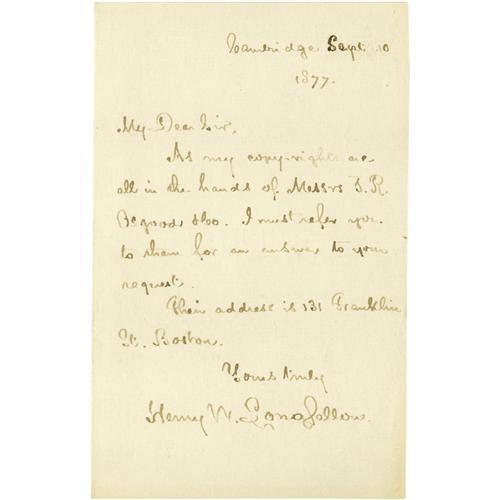 Cambridge Sept. 10
1877.
My Dear Sir,
As my copy-rights are
all in the hands of Messrs J. R.
Osgood & Co. I must refer you
to them for an answer to your
request.
Their address is 131 Franklin
St. Boston.
Yours truly
Henry W. Longfellow.